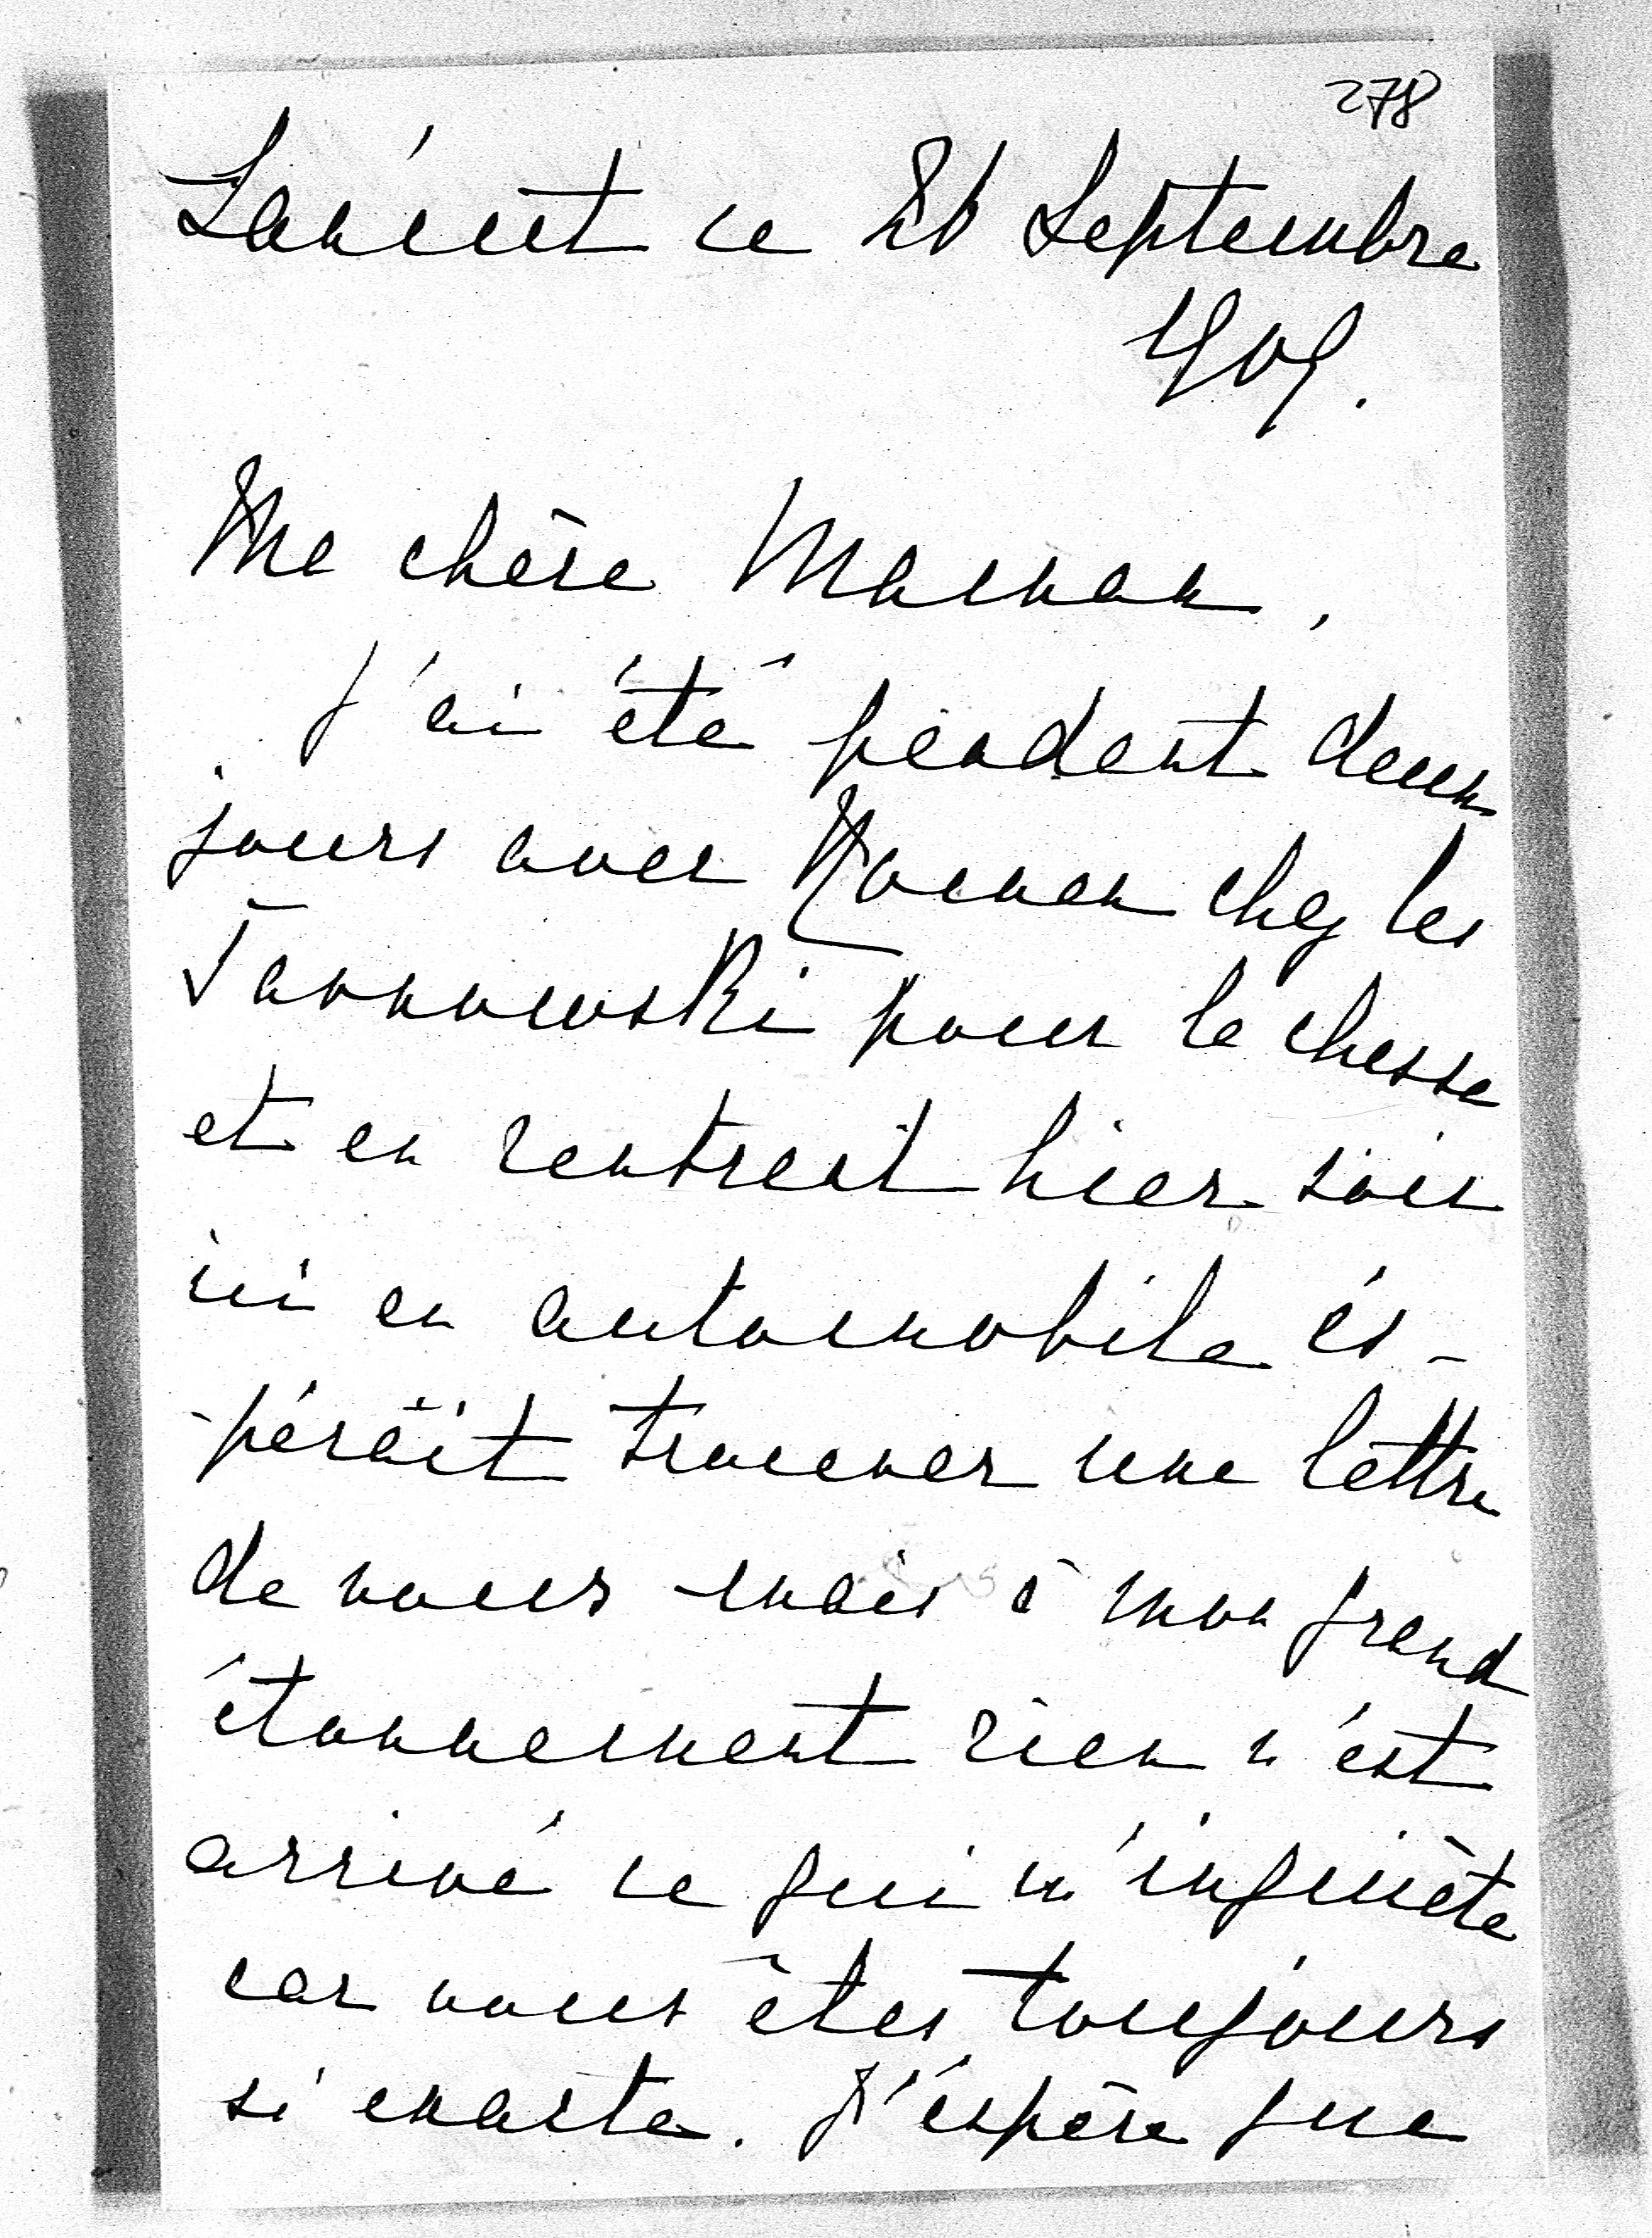 278
Łańcut ce 26 Septembre
1909.
Ma chère Maman,
J'ai été pendant deux
jours avec Roman chez les
Tarnowski pour la chasse
et en rentrant hier soir
ici en automobile és-
-pérait trouver une lettre
de vous mais à mon grand
étonnement rien n'est
arrivé ce qui m'inquiète
car vous êtes toujours
si exacte. J'éspère que